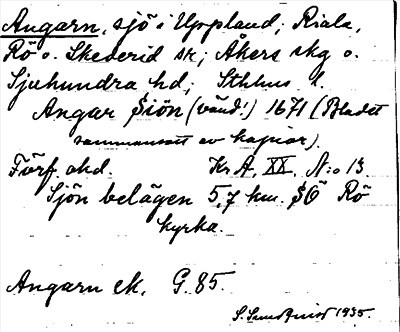 Angarn, sjö i Uppland; Riala,
Rö o. Skederid sn; Åkers skg o.
Sjuhundra hd; Sthlms l.
Angar Siön (vänd!) 1671 (Bladet
sammansatt av kopior).
Förf. okd. Kr A, XX, N:o 13.
Sjön belägen 5,7 km. SÖ Rö
kyrka.
Angarn ek. G. 85.
1935.